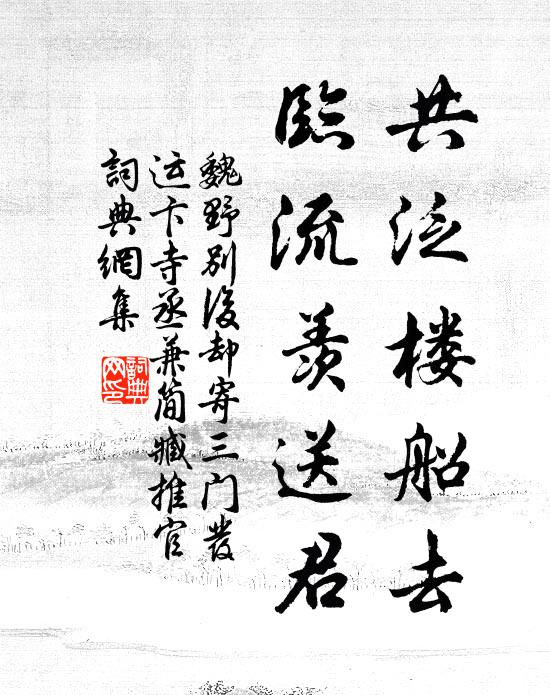 共泛楼船去
臨流羨送君
魏野别後却寄三门發
运卞寺丞兼简臧推官
詞典網集
詞典
网印